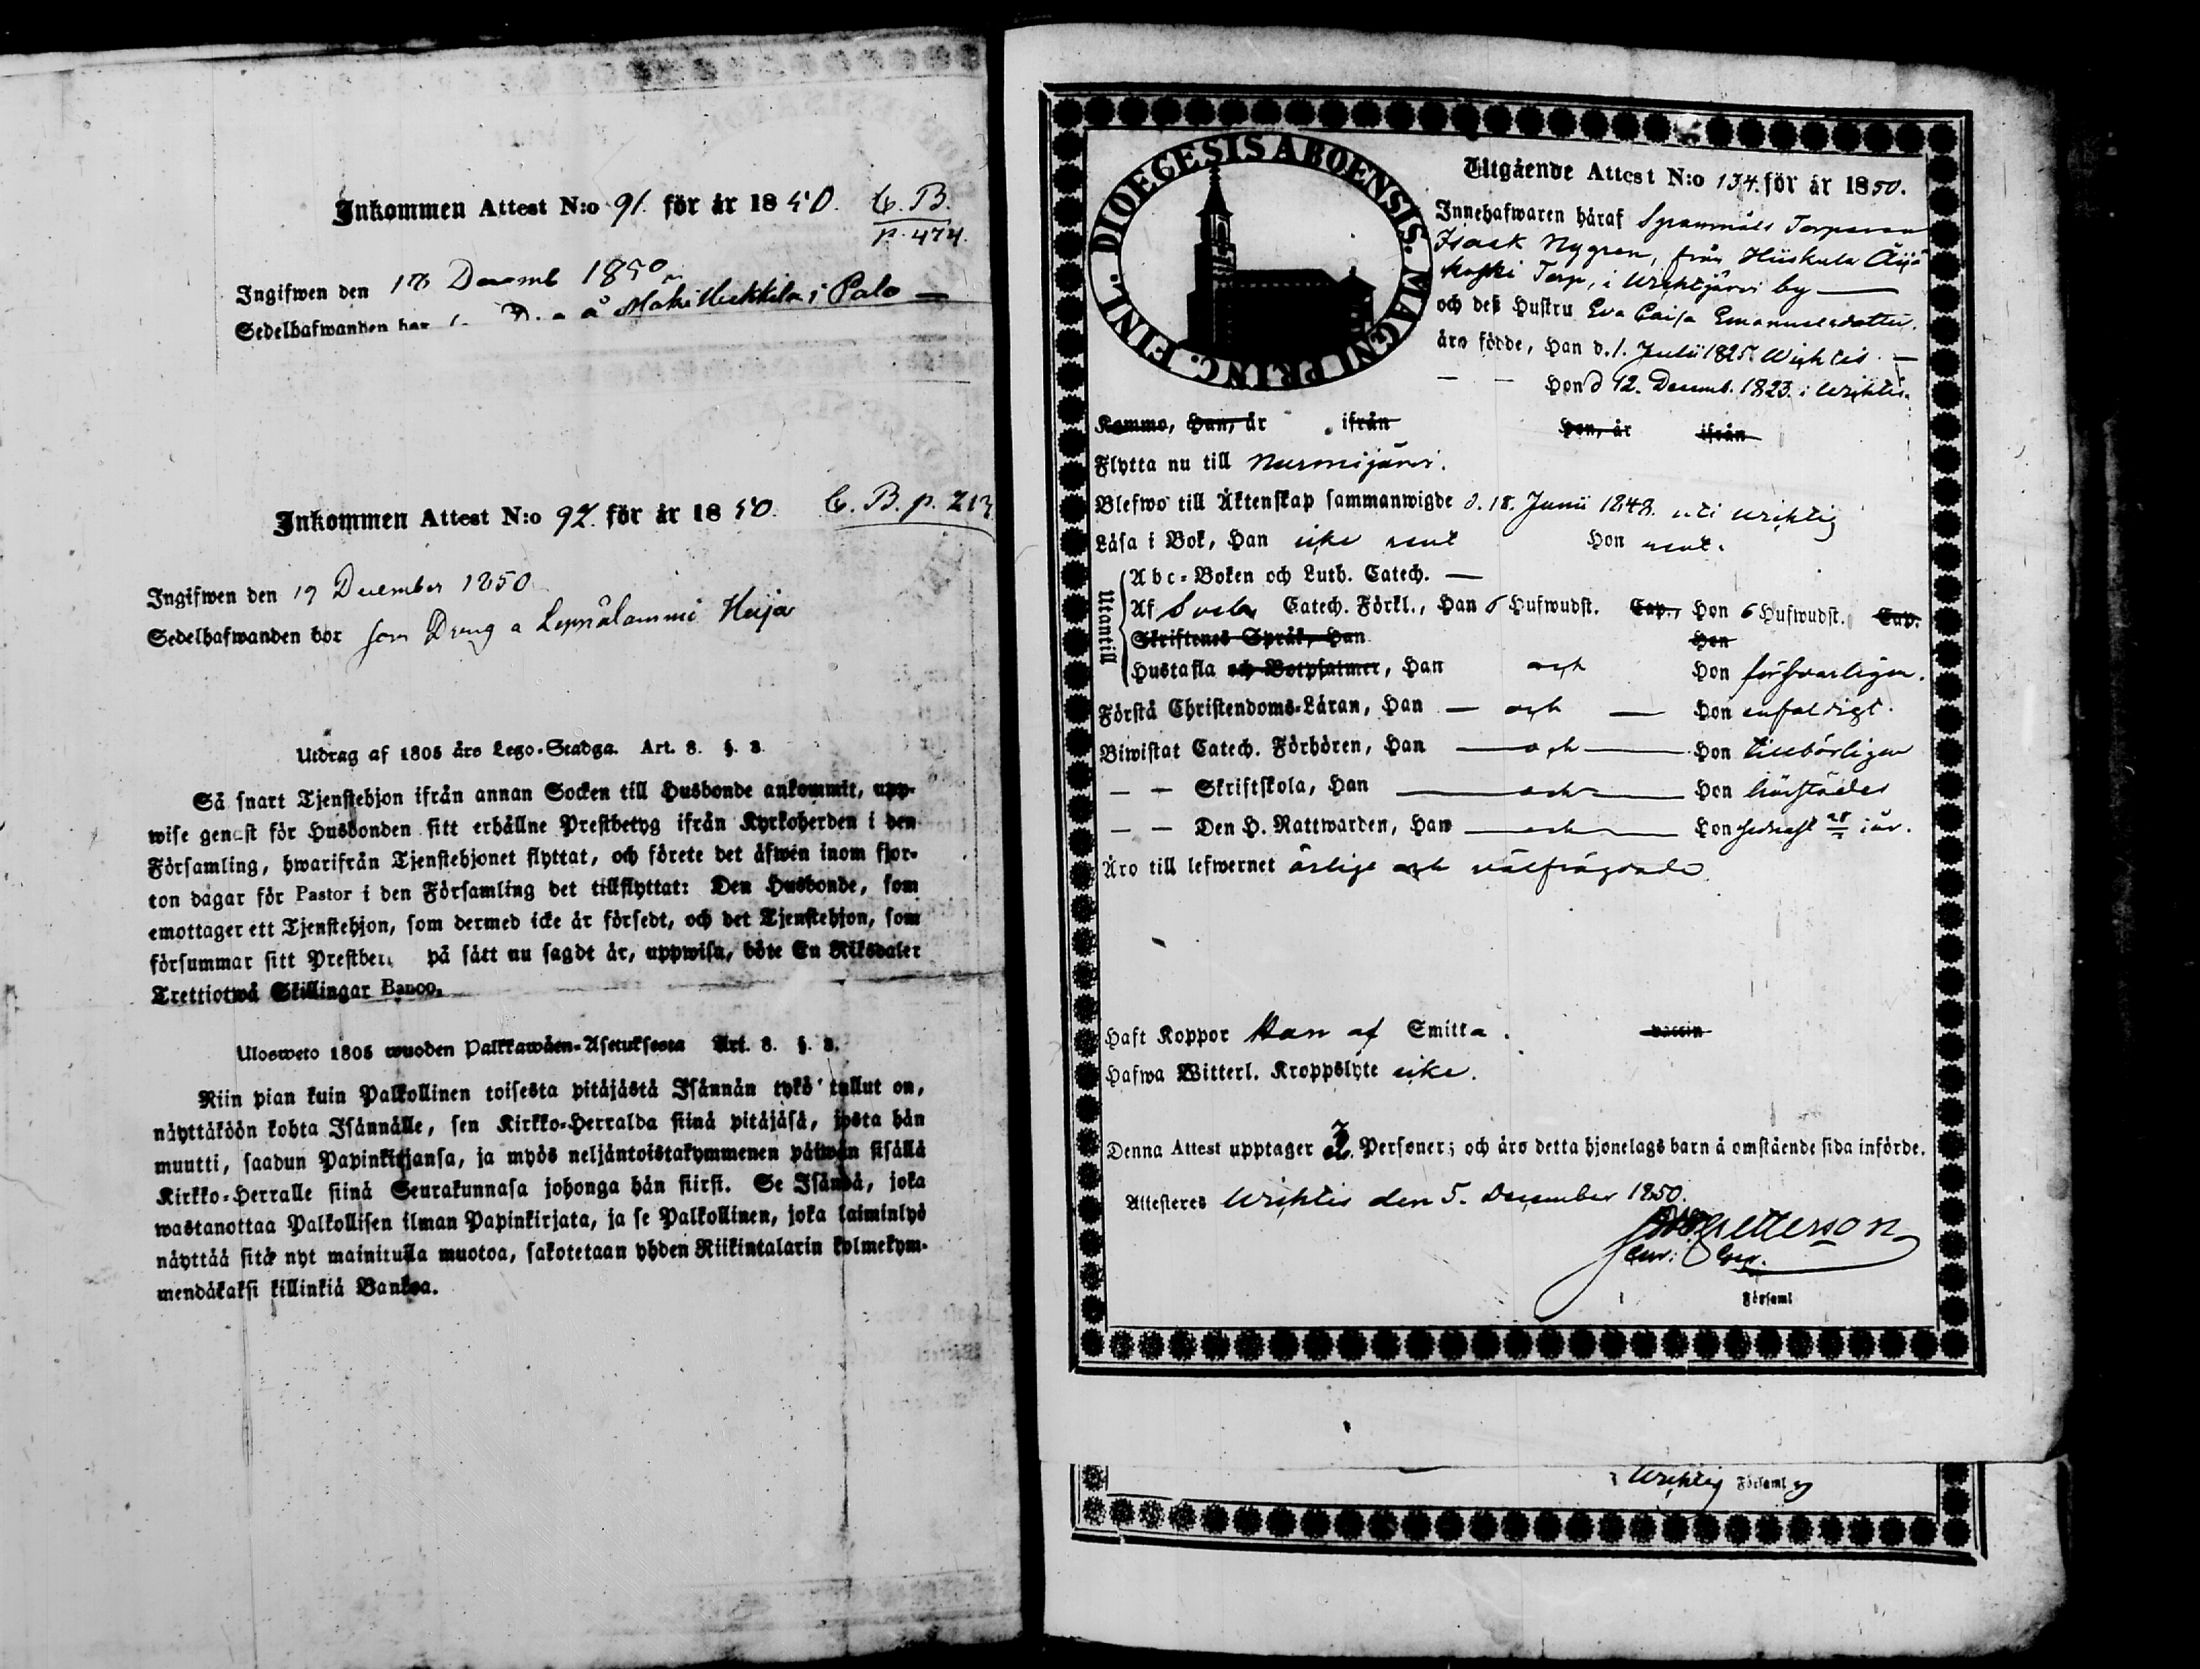 Inkommen Attest N:o 91. för år 1850. C. B.
p. 474.
Ingifwen den 18 Decemb 1850
Sedelhafwanden bor å i Palo —
Inkommen Attest N:o 92. för år 1850. C. B. p. 213
Ingifwen den 19 December 1850
Sedelhafwanden bor som Dreng a Leppälammi Heija
Utdrag af 1805 års Lego-Stadga. Art. 8. §. 3.
Så snart Tjenstehjon ifrån annan Socken till Husbonde ankommit, upp-
wise genast för Husbonden sitt erhållne Prestbetyg ifrån Kyrkoherden i den
Församling, hwarifrån Tjenstehjonet flyttat, och förete det äfwen inom fjor-
ton dagar för Pastor i den Församling det tillflyttat: Den Husbonde, som
emottager ett Tjenstehjon, som dermed icke är försedt, och det Tjenstehjon, som
försummar sitt Prestbet. på sätt nu sagdt är, uppwisa, böte En Riksdaler
Trettiotwå Skillingar Banco.
Ulosweto 1805 wuoden Palkkawäen-Asetuksesta Art. 8. §. 3.
Niin pian kuin Palkollinen toisesta pitäjästä Isännän tykö tullut on,
näyttäköön kohta Isännälle, sen Kirkko-Herralda siinä pitäjäsä, josta hän
muutti, saadun Papinkirjansa, ja myös neljäntoistakymmenen päiwän sisällä
Kirkko-Herralle siinä Seurakunnasa johonga hän siirsi. Se Isändä, joka
wastanottaa Palkollisen ilman Papinkirjata, ja se Palkollinen, joka laiminlyö
näyttää sitä nyt mainitulla muotoa, sakotetaan yhden Riikintalarin kolmekym-
mendäkaksi killinkiä Bankoa.
DIOECESIS ABOENSIS. MAGNI PRINC. FINL.
Utgående Attest N:o 134. för år 1850.
Innehafwaren häraf Torparen
Isaak Nygren, från Hiiskula Äijä
koski Torp, i Wichtijärvi by —
och deß Hustru Eva Caisa Emanuelsdotter.
äro födde, Han d. 1. Julii 1825. Wichtis. —
— — Hon d 12. Decemb. 1823. i Wichtis.
Komme, Han, år ifrån Hon, år ifrån
Flytta nu till Nurmijärvi.
Blefwo till Äktenskap sammanwigde d. 18. Junii 1848. uti Wichtis
Läsa i Bok, Han icke rent Hon rent.
Utantill
Abc-Boken och Luth. Catech. —
Af Svebe Catech. Förkl., Han 6 Hufwudst. Cap., Hon 6 Hufwudst. Cap.
Skriftenes Språk, Han Hon
Hustafla och Botpsalmer, Han och Hon försvarligen.
Förstå Christendoms-Läran, Han — och — Hon enfaldigt.
Biwistat Catech. Förhören, Han — och — Hon tillbörligen
— — Skriftskola, Han — och — Hon härstädes
— — Den H. Nattwarden, Han — och — Hon i år.
Äro till lefwernet ärlige och välfrägdade
Haft Koppor Han af Smitta. vaccin
Hafwa Witterl. Kroppslyte icke.
Denna Attest upptager 3. Personer; och äro detta hjonelags barn å omstående sida införde.
Attesteres Wichtis den 5. December 1850.
i Församl
i Wichtis Församl